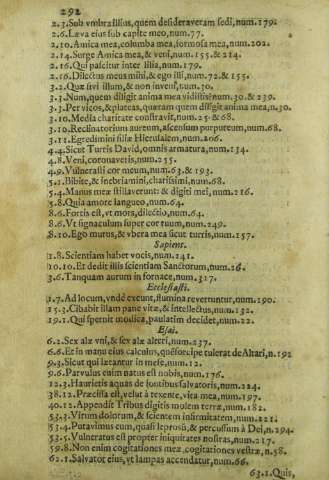 292
2.3. Sub vmbra illius, quem desideraveram sedi, num. 179.
2.6. Læva eius sub capite meo, num. 77.
2.10. Amica mea, columba mea, formosa mea, num. 202.
2.14. Surge Amica mea, & veni, num. 155. & 214.
2.16. Qui pascitur inter lilia, num. 179.
2.16. Dilectus meus mihi, & ego illi, num. 72. & 155.
3.2. Quæ sivi illum, & non inveni, num. 30.
3.3. Num, quem diligit anima mea vidistis? num. 30. & 239.
3.3. Per vicos, & plateas, quæram quem diligit anima mea, n. 30.
3.10. Media charitate constravit, num. 25. & 68.
3.10. Reclinatorium aureum, ascensum purpureum, num. 68.
3.11. Egredimini filiæ Hierusalem, num. 206.
4.4. Sicut Turris David, omnis armatura, num. 134.
4.8. Veni, coronaveris, num. 235.
4.9. Vulnerasti cor meum, num. 63. & 193.
5.1. Bibite, & inebriamini, charissimi, num. 68.
5.4. Manus meæ stillaverunt: & digiti mei, num. 216.
5.8. Quia amore langueo, num. 64.
8.6. Fortis est, vt mors, dilectio, num. 64.
8.6. Vt signaculum super cor tuum, num. 249.
8.10. Ego murus, & vbera mea sicut turris, num. 157.
Sapient.
1.8. Scientiam habet vocis, num. 241.
10.10. Et dedit illis scientiam Sanctorum, num. 26.
3.6. Tanquam aurum in fornace, num. 317.
Ecclesiasti.
1.7. Ad locum, vndè exeunt, flumina revertuntur, num. 190.
15.3. Cibabit illam pane vitæ, & intellectus, num. 132.
19.1. Qui spernit modica, paulatim decidet, num. 22.
Esai.
6.2. Sex alæ vni, & sex alæ alteri, num. 285.
6.6. Et in manu eius calculus, quē forcipe tulerat de Altari, n. 192
9.3. Sicut qui lætantur in messe, num. 12.
9.6. Parvulus enim natus est nobis, num. 176.
12.3. Haurietis aquas de fontibus salvatoris, num. 224.
38.12. Præcisa est, velut à texente, vita mea, num. 197.
40.12. Appendit Tribus digitis molem terræ, num. 182.
53.3. Virum dolorum, & scientem infirmitatem, num. 221.
53.4. Putavimus eum, quasi leprosū, & percussum à Dei, n. 294.
53.5. Vulneratus est propter iniquitates nostras, num. 217.
59.8. Non enim cogitationes meæ, cogitationes vestræ, n. 58.
62.1. Salvator eius, vt lampas accendatur, num. 66.
63.1. Quis,